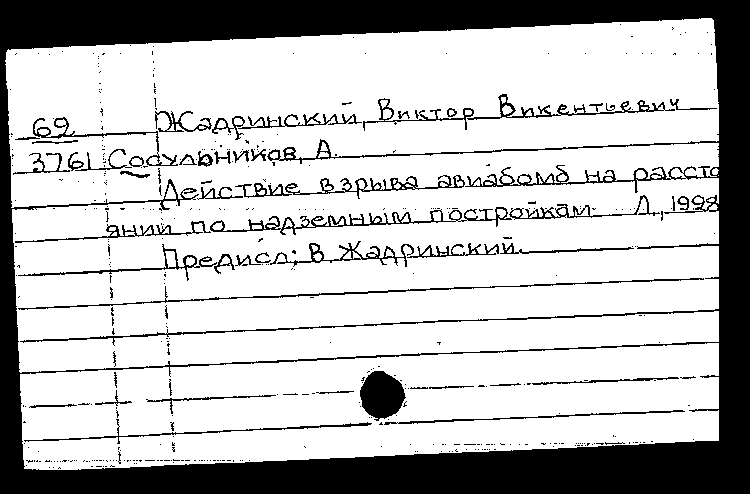 69 Жадринский, Виктор Викентьевич
3761 Сосульников, А.
Действие взрыва авиабомб на рассто
янии по надземным постройкам. Л., 1928
Предисл; В. Жадринский.